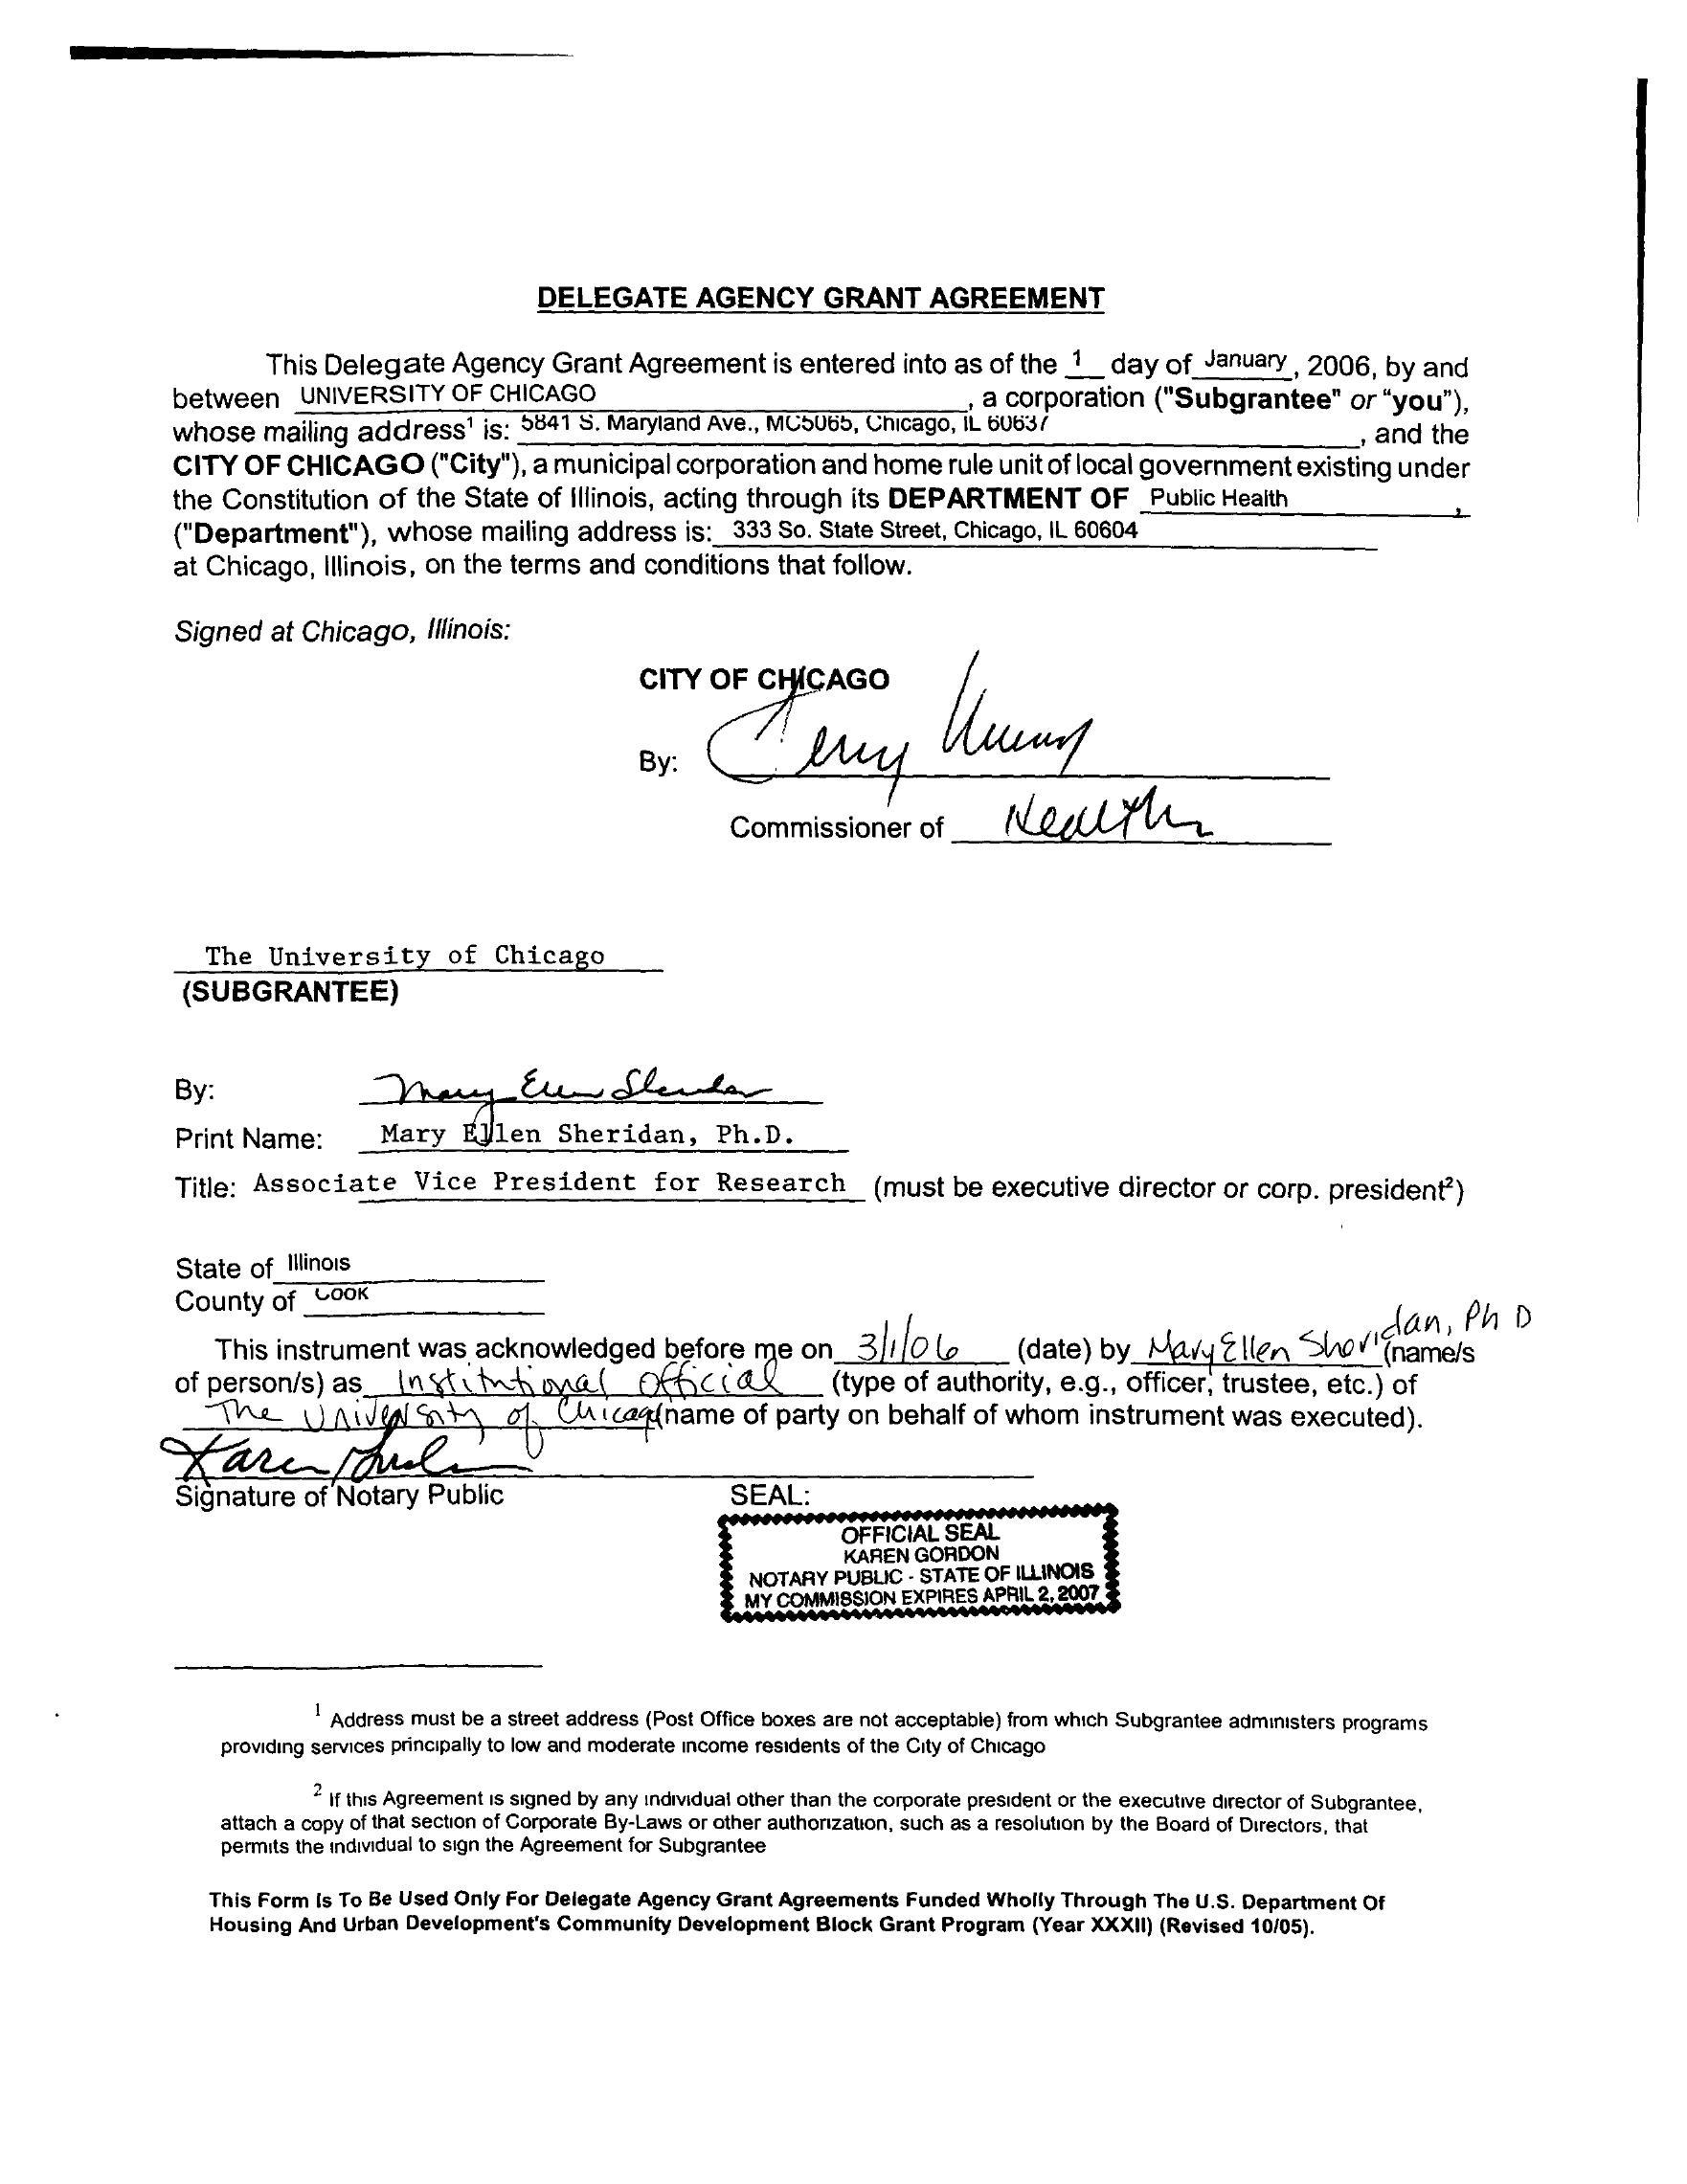 DELEGATE AGENCY GRANT AGREEMENT
This Delegate Agency Grant Agreement is entered into as of the 1 day of January, 2006, by and
between UNIVERSITY OF CHICAGO, a corporation ("Subgrantee" or "you"),
whose mailing address¹ is: 5841 S. Maryland Ave., MC5065, Chicago, IL 60637, and the
CITY OF CHICAGO ("City"), a municipal corporation and home rule unit of local government existing under
the Constitution of the State of Illinois, acting through its DEPARTMENT OF Public Health,
("Department"), whose mailing address is: 333 So. State Street, Chicago, IL 60604
at Chicago, Illinois, on the terms and conditions that follow.
Signed at Chicago, Illinois:
CITY OF CHICAGO
By:
Commissioner of Health
The University of Chicago
(SUBGRANTEE)
By: Mary Ellen Sheridan
Print Name: Mary Ellen Sheridan, Ph.D.
Title: Associate Vice President for Research (must be executive director or corp. president²)
State of Illinois
County of COOK
This instrument was acknowledged before me on 3/1/06 (date) by Mary Ellen Sheridan, Ph D (name/s
of person/s) as Institutional Official (type of authority, e.g., officer, trustee, etc.) of
The University of Chicago (name of party on behalf of whom instrument was executed).
Karen
Signature of Notary Public SEAL:
OFFICIAL SEAL
KAREN GORDON
NOTARY PUBLIC - STATE OF ILLINOIS
MY COMMISSION EXPIRES APRIL 2, 2007
¹ Address must be a street address (Post Office boxes are not acceptable) from which Subgrantee administers programs
providing services principally to low and moderate income residents of the City of Chicago
² If this Agreement is signed by any individual other than the corporate president or the executive director of Subgrantee,
attach a copy of that section of Corporate By-Laws or other authorization, such as a resolution by the Board of Directors, that
permits the individual to sign the Agreement for Subgrantee
This Form Is To Be Used Only For Delegate Agency Grant Agreements Funded Wholly Through The U.S. Department Of
Housing And Urban Development's Community Development Block Grant Program (Year XXXII) (Revised 10/05).